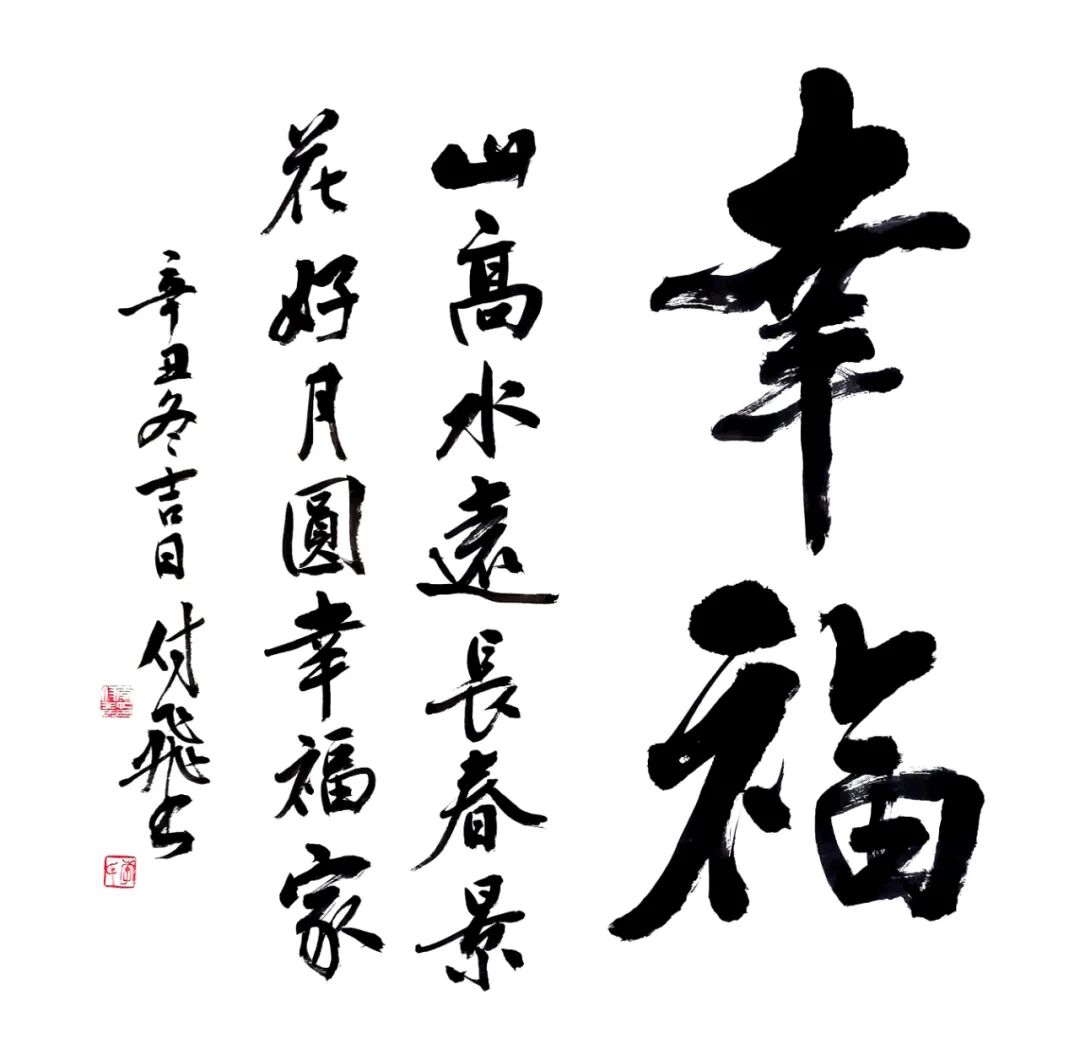 幸福
山高水遠長春景
花好月圓幸福家
辛丑冬吉日付飛书